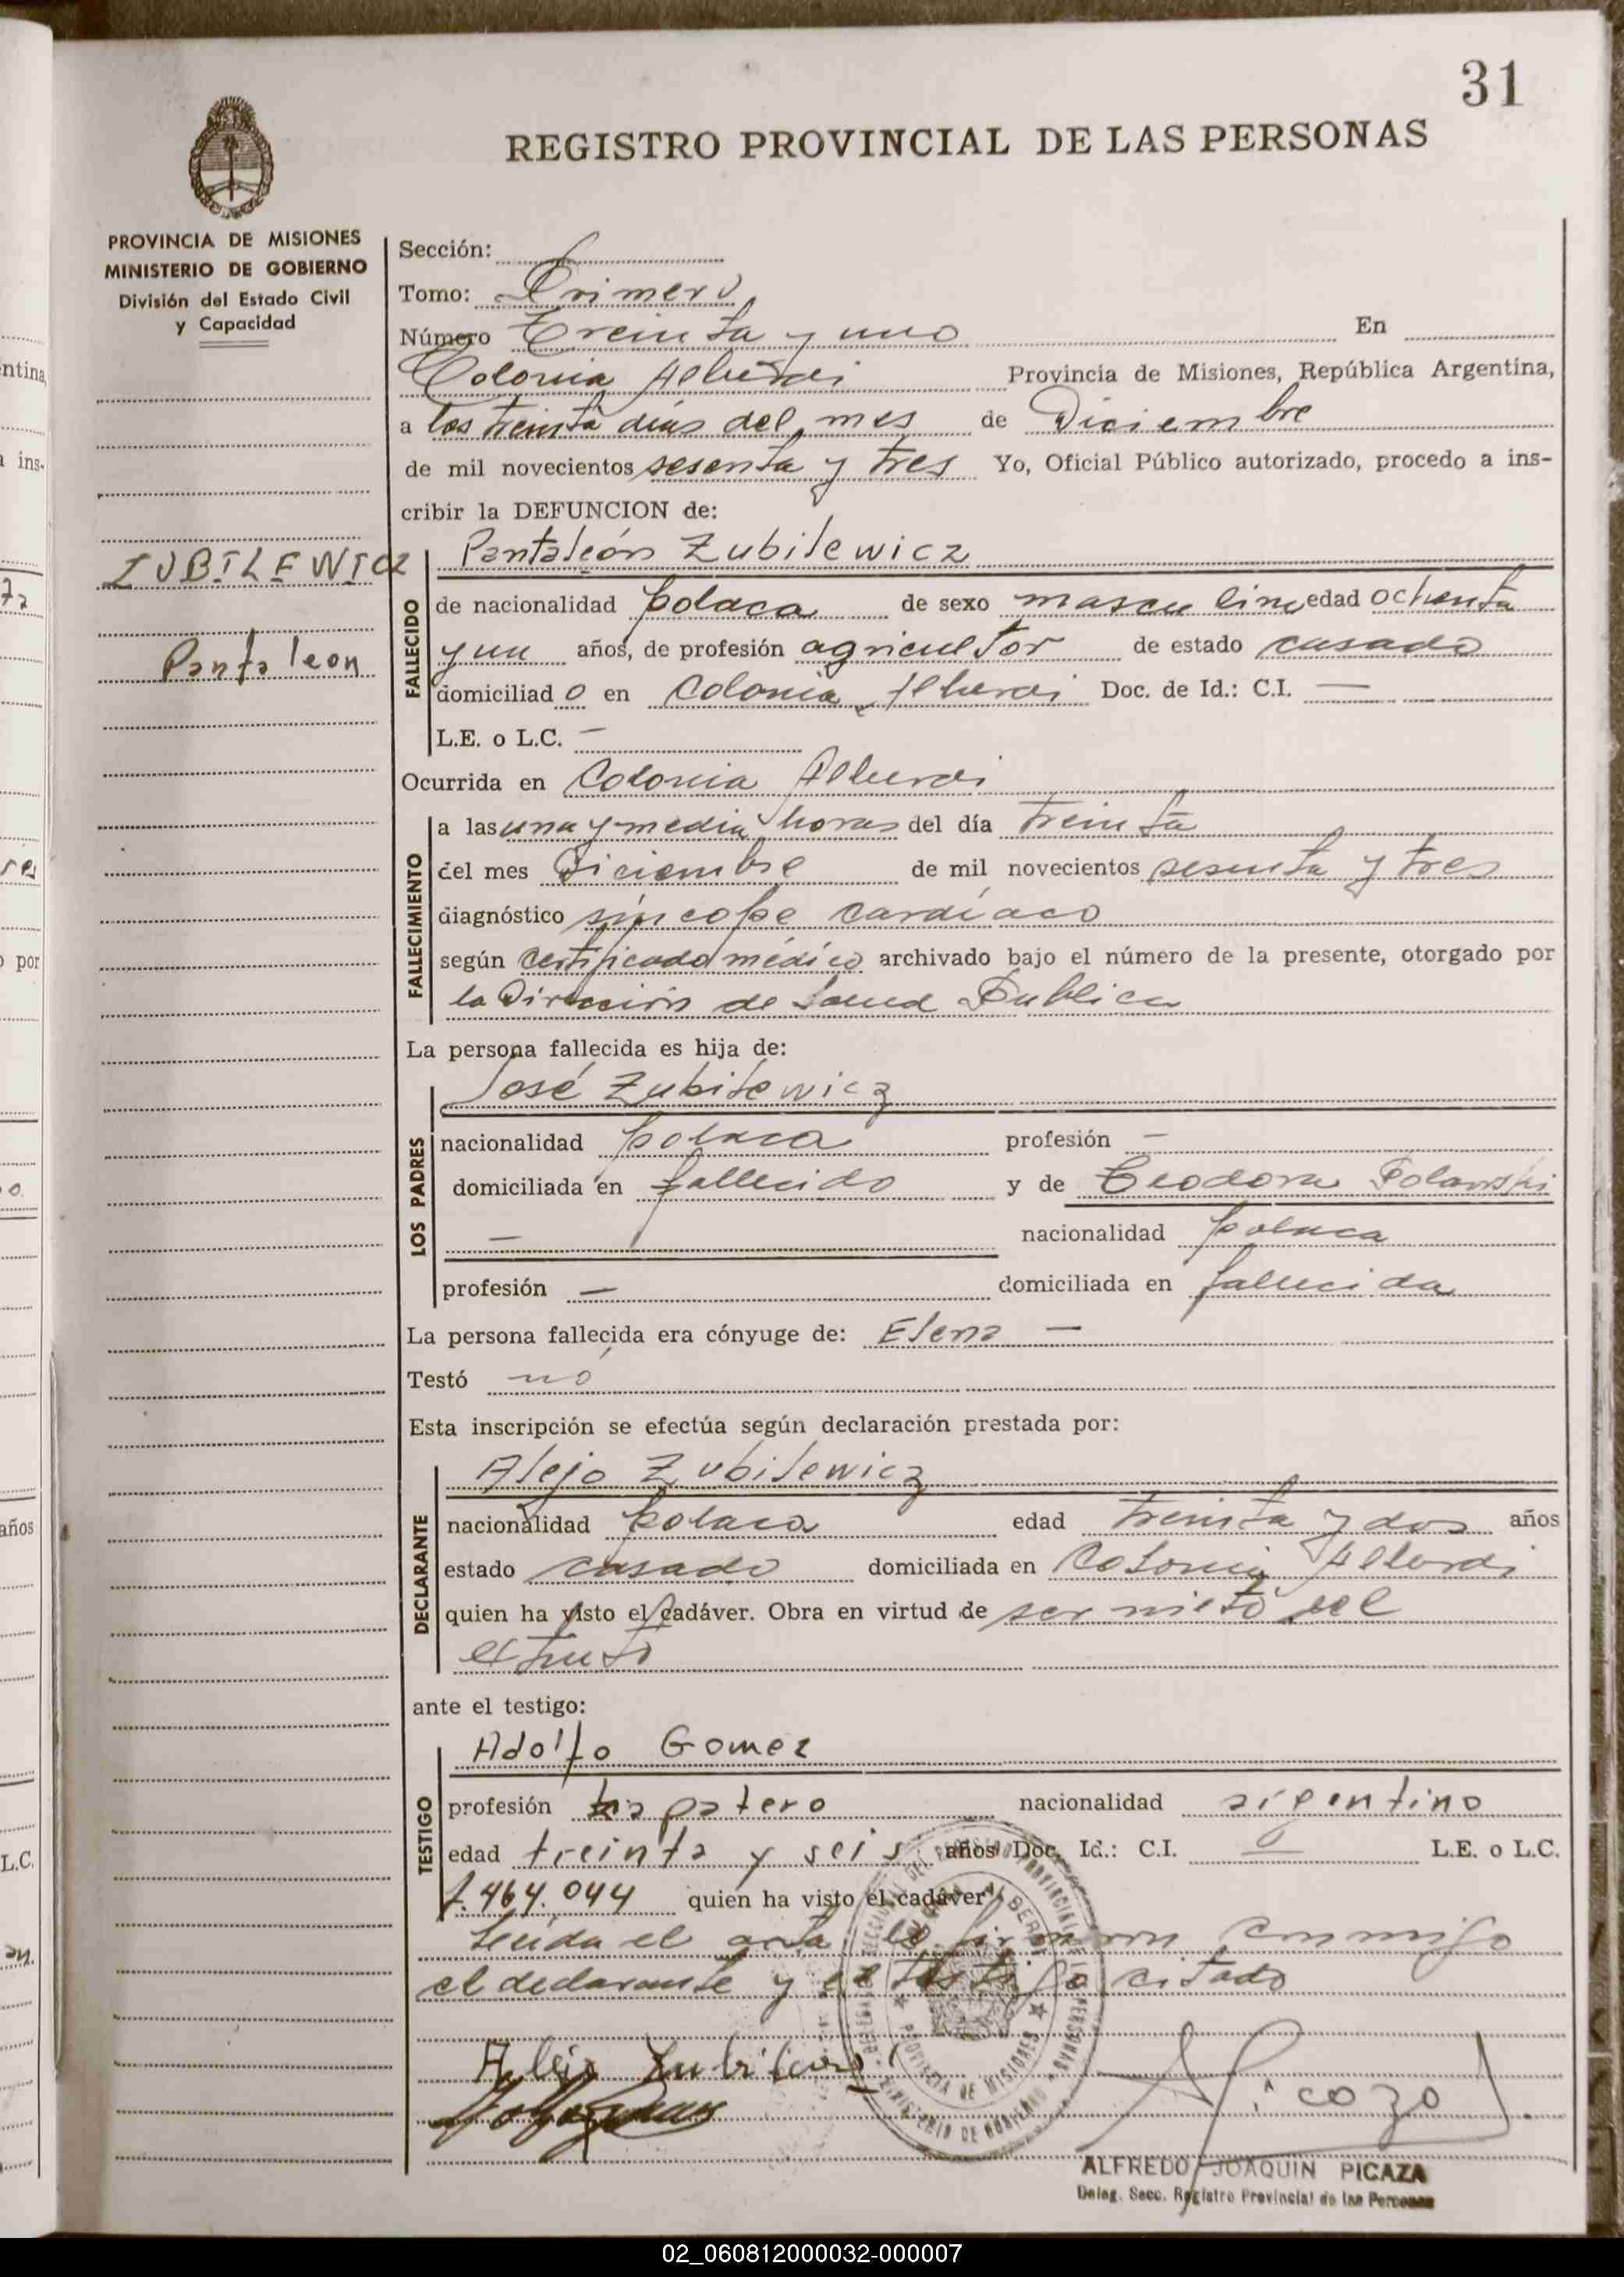 31
REGISTRO PROVINCIAL DE LAS PERSONAS
PROVINCIA DE MISIONES
MINISTERIO DE GOBIERNO
División del Estado Civil
y Capacidad
ZUBILEWICZ
Pantaleon
Sección:
Tomo: Primero
Número Treinta y uno En
Colonia Alberdi Provincia de Misiones, República Argentina,
a los treinta días del mes de Diciembre
de mil novecientos sesenta y tres Yo, Oficial Público autorizado, procedo a ins-
cribir la DEFUNCION de:
Pantaleón Zubilewicz
FALLECIDO
de nacionalidad polaca de sexo masculino edad ochenta
y un años, de profesión agricultor de estado casado
domiciliad o en Colonia Alberdi Doc. de Id.: C.I. —
L.E. o L.C. —
Ocurrida en Colonia Alberdi
FALLECIMIENTO
a las una y media horas del día treinta
del mes Diciembre de mil novecientos sesenta y tres
diagnóstico síncope cardíaco
según certificado médico archivado bajo el número de la presente, otorgado por
la Dirección de Salud Publica
La persona fallecida es hija de:
José Zubilewicz
LOS PADRES
nacionalidad polaca profesión —
domiciliada en fallecido y de Teodora Polanski
— nacionalidad polaca
profesión — domiciliada en fallecida
La persona fallecida era cónyuge de: Elena —
Testó nó
Esta inscripción se efectúa según declaración prestada por:
Alejo Zubilewicz
DECLARANTE
nacionalidad polaca edad treinta y dos años
estado casado domiciliada en Colonia Alberdi
quien ha visto el cadáver. Obra en virtud de ser nieto del
extinto
ante el testigo:
Adolfo Gomez
TESTIGO
profesión zapatero nacionalidad argentino
edad treinta y seis años Doc. Id.: C.I. — L.E. o L.C.
7.464.044 quien ha visto el cadáver
Leída el acta la firmaron conmigo
el declarante y el testigo citado
Alejo
Picaza
ALFREDO JOAQUIN PICAZA
Deleg. Secc. Registro Provincial de las Personas
PROVINCIA DE MISIONES
MINISTERIO DE GOBIERNO
02_060812000032-000007